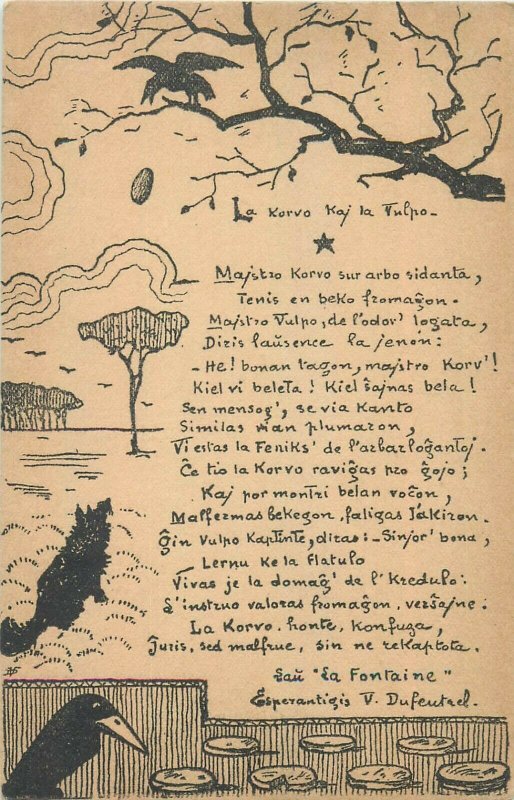 La Korvo Kaj la Vulpo-
Majstro Korvo sur arbo sidanta,
Tenis en beko fromaĝon.
Majstro Vulpo, de l'odor' logata,
Diris laŭsence la jenon:
- He! bonan tagon, majstro Korv'!
Kiel vi beleta! Kiel ŝajnas bela!
Sen mensog', se via Kanto
Similas vian plumaron,
Vi estas la Feniks' de l'arbarloĝantoj.
Ĉe tio la Korvo raviĝas pro ĝojo;
Kaj por montri belan voĉon,
Malfermas bekegon, faligas l'akiron.
Ĝin Vulpo Kaptinte, diras: - Sinjor' bona,
Lernu Ke la flatulo
Vivas je la domaĝ' de l' Kredulo:
L'instruo valoras fromaĝon, verŝajne.
La Korvo, honte, konfuza,
Ĵuris, sed malfrue, sin ne rekaptota.
Laŭ "La Fontaine"
Esperantigis V. Dufeutrel.